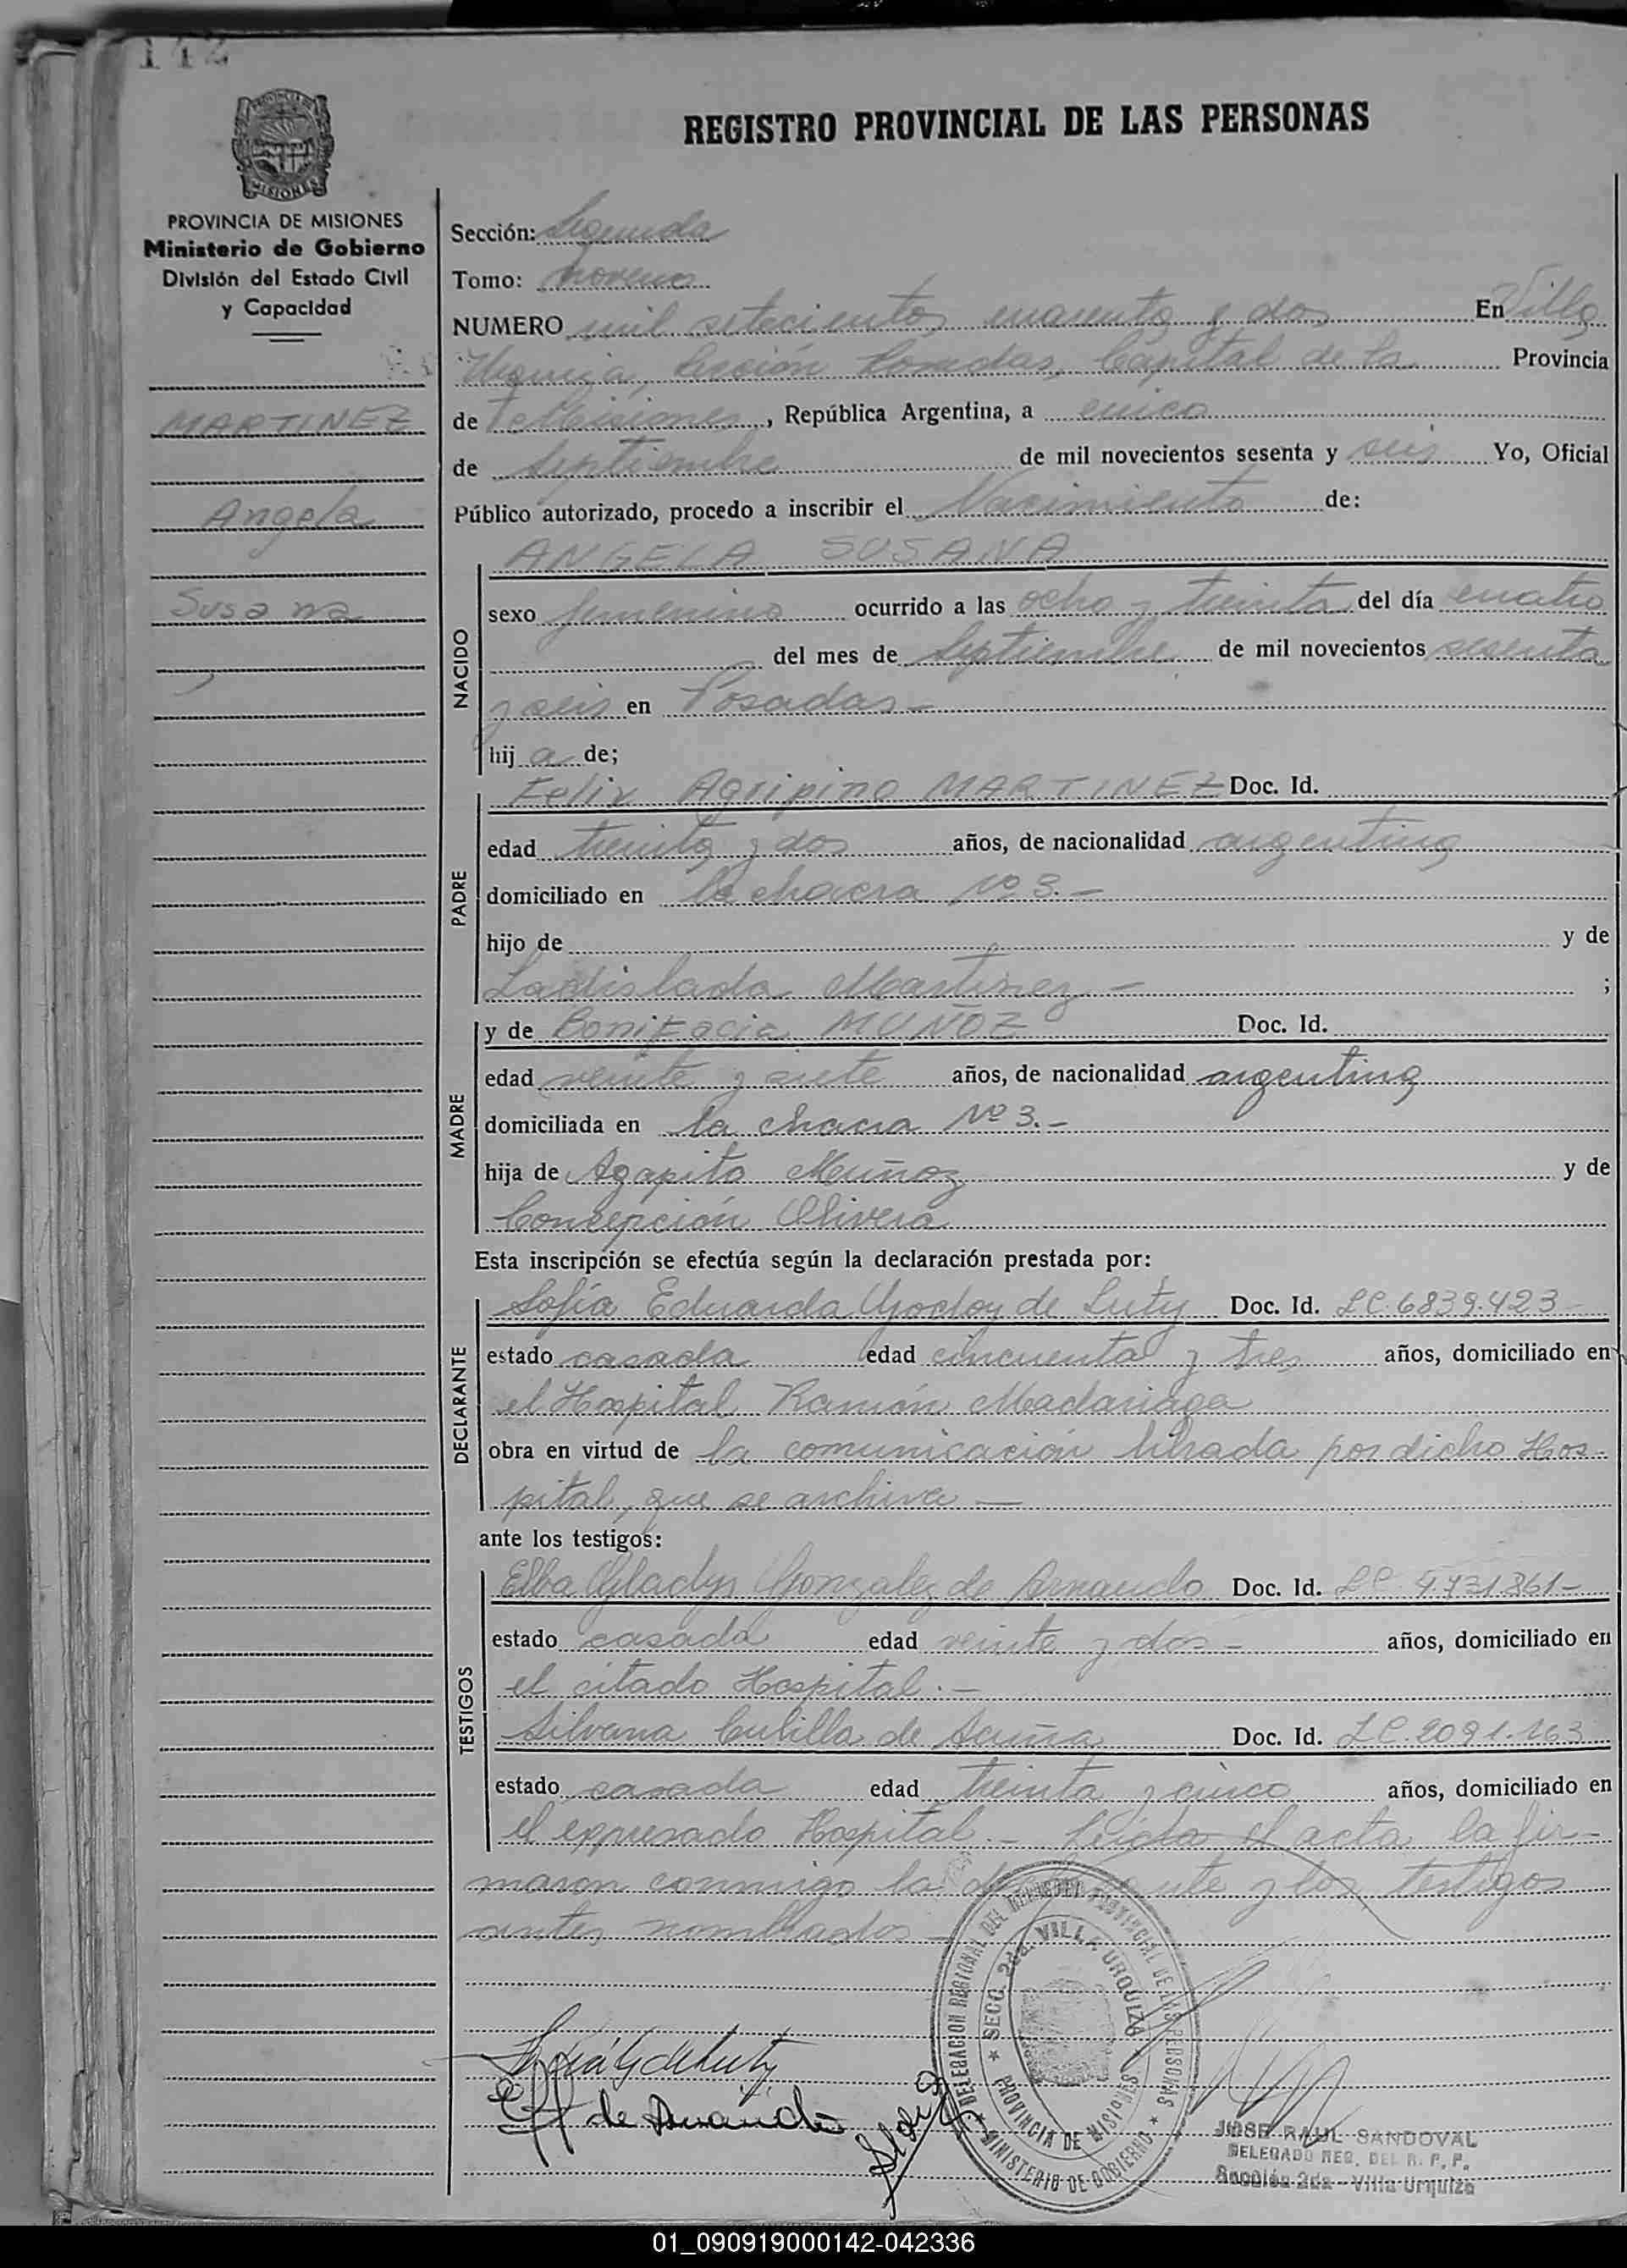 142
REGISTRO PROVINCIAL DE LAS PERSONAS
PROVINCIA DE MISIONES
Ministerio de Gobierno
División del Estado Civil
y Capacidad
MARTINEZ
Angela
Susana
Sección: Segunda
Tomo: noveno
NUMERO mil setecientos cuarenta y dos En Villa
Urquiza, Sección Posadas, Capital de la Provincia
de Misiones, República Argentina, a cinco
de Septiembre de mil novecientos sesenta y seis Yo, Oficial
Público autorizado, procedo a inscribir el Nacimiento de:
ANGELA SUSANA
NACIDO
sexo femenino ocurrido a las ocho y treinta del día cuatro
del mes de Septiembre de mil novecientos sesenta
y seis en Posadas -
hij a de;
PADRE
Felix Agripino MARTINEZ Doc. Id.
edad treinta y dos años, de nacionalidad argentina
domiciliado en la chacra Nº 3.-
hijo de y de
Ladislada Martinez - ;
MADRE
y de Bonifacia MUÑOZ Doc. Id.
edad veinte y siete años, de nacionalidad argentina
domiciliada en la chacra Nº 3.-
hija de Agapito Muñoz y de
Concepción Olivera
Esta inscripción se efectúa según la declaración prestada por:
DECLARANTE
Sofía Eduarda Godoy de Luty Doc. Id. LC. 6839.423
estado casada edad cincuenta y tres años, domiciliado en
el Hospital Ramón Madariaga
obra en virtud de la comunicación librada por dicho Hos-
pital, que se archiva -
ante los testigos:
TESTIGOS
Elba Gladys Gonzalez de Arnaudo Doc. Id. LC 4.731.361-
estado casada edad veinte y dos - años, domiciliado en
el citado Hospital.-
Silvana Cubilla de Acuña Doc. Id. LC. 2091.163
estado casada edad treinta y cinco años, domiciliado en
el expresado Hospital.- Leida el acta la fir-
maron conmigo la declarante y los testigos
antes nombrados
DELEGACION REGIONAL DEL REGISTRO PROVINCIAL DE LAS PERSONAS
SECC. 2da. VILLA URQUIZA
PROVINCIA DE MISIONES
MINISTERIO DE GOBIERNO
JOSE RAUL SANDOVAL
DELEGADO REG. DEL R. P. P.
Sección 2da - Villa Urquiza
01_090919000142-042336